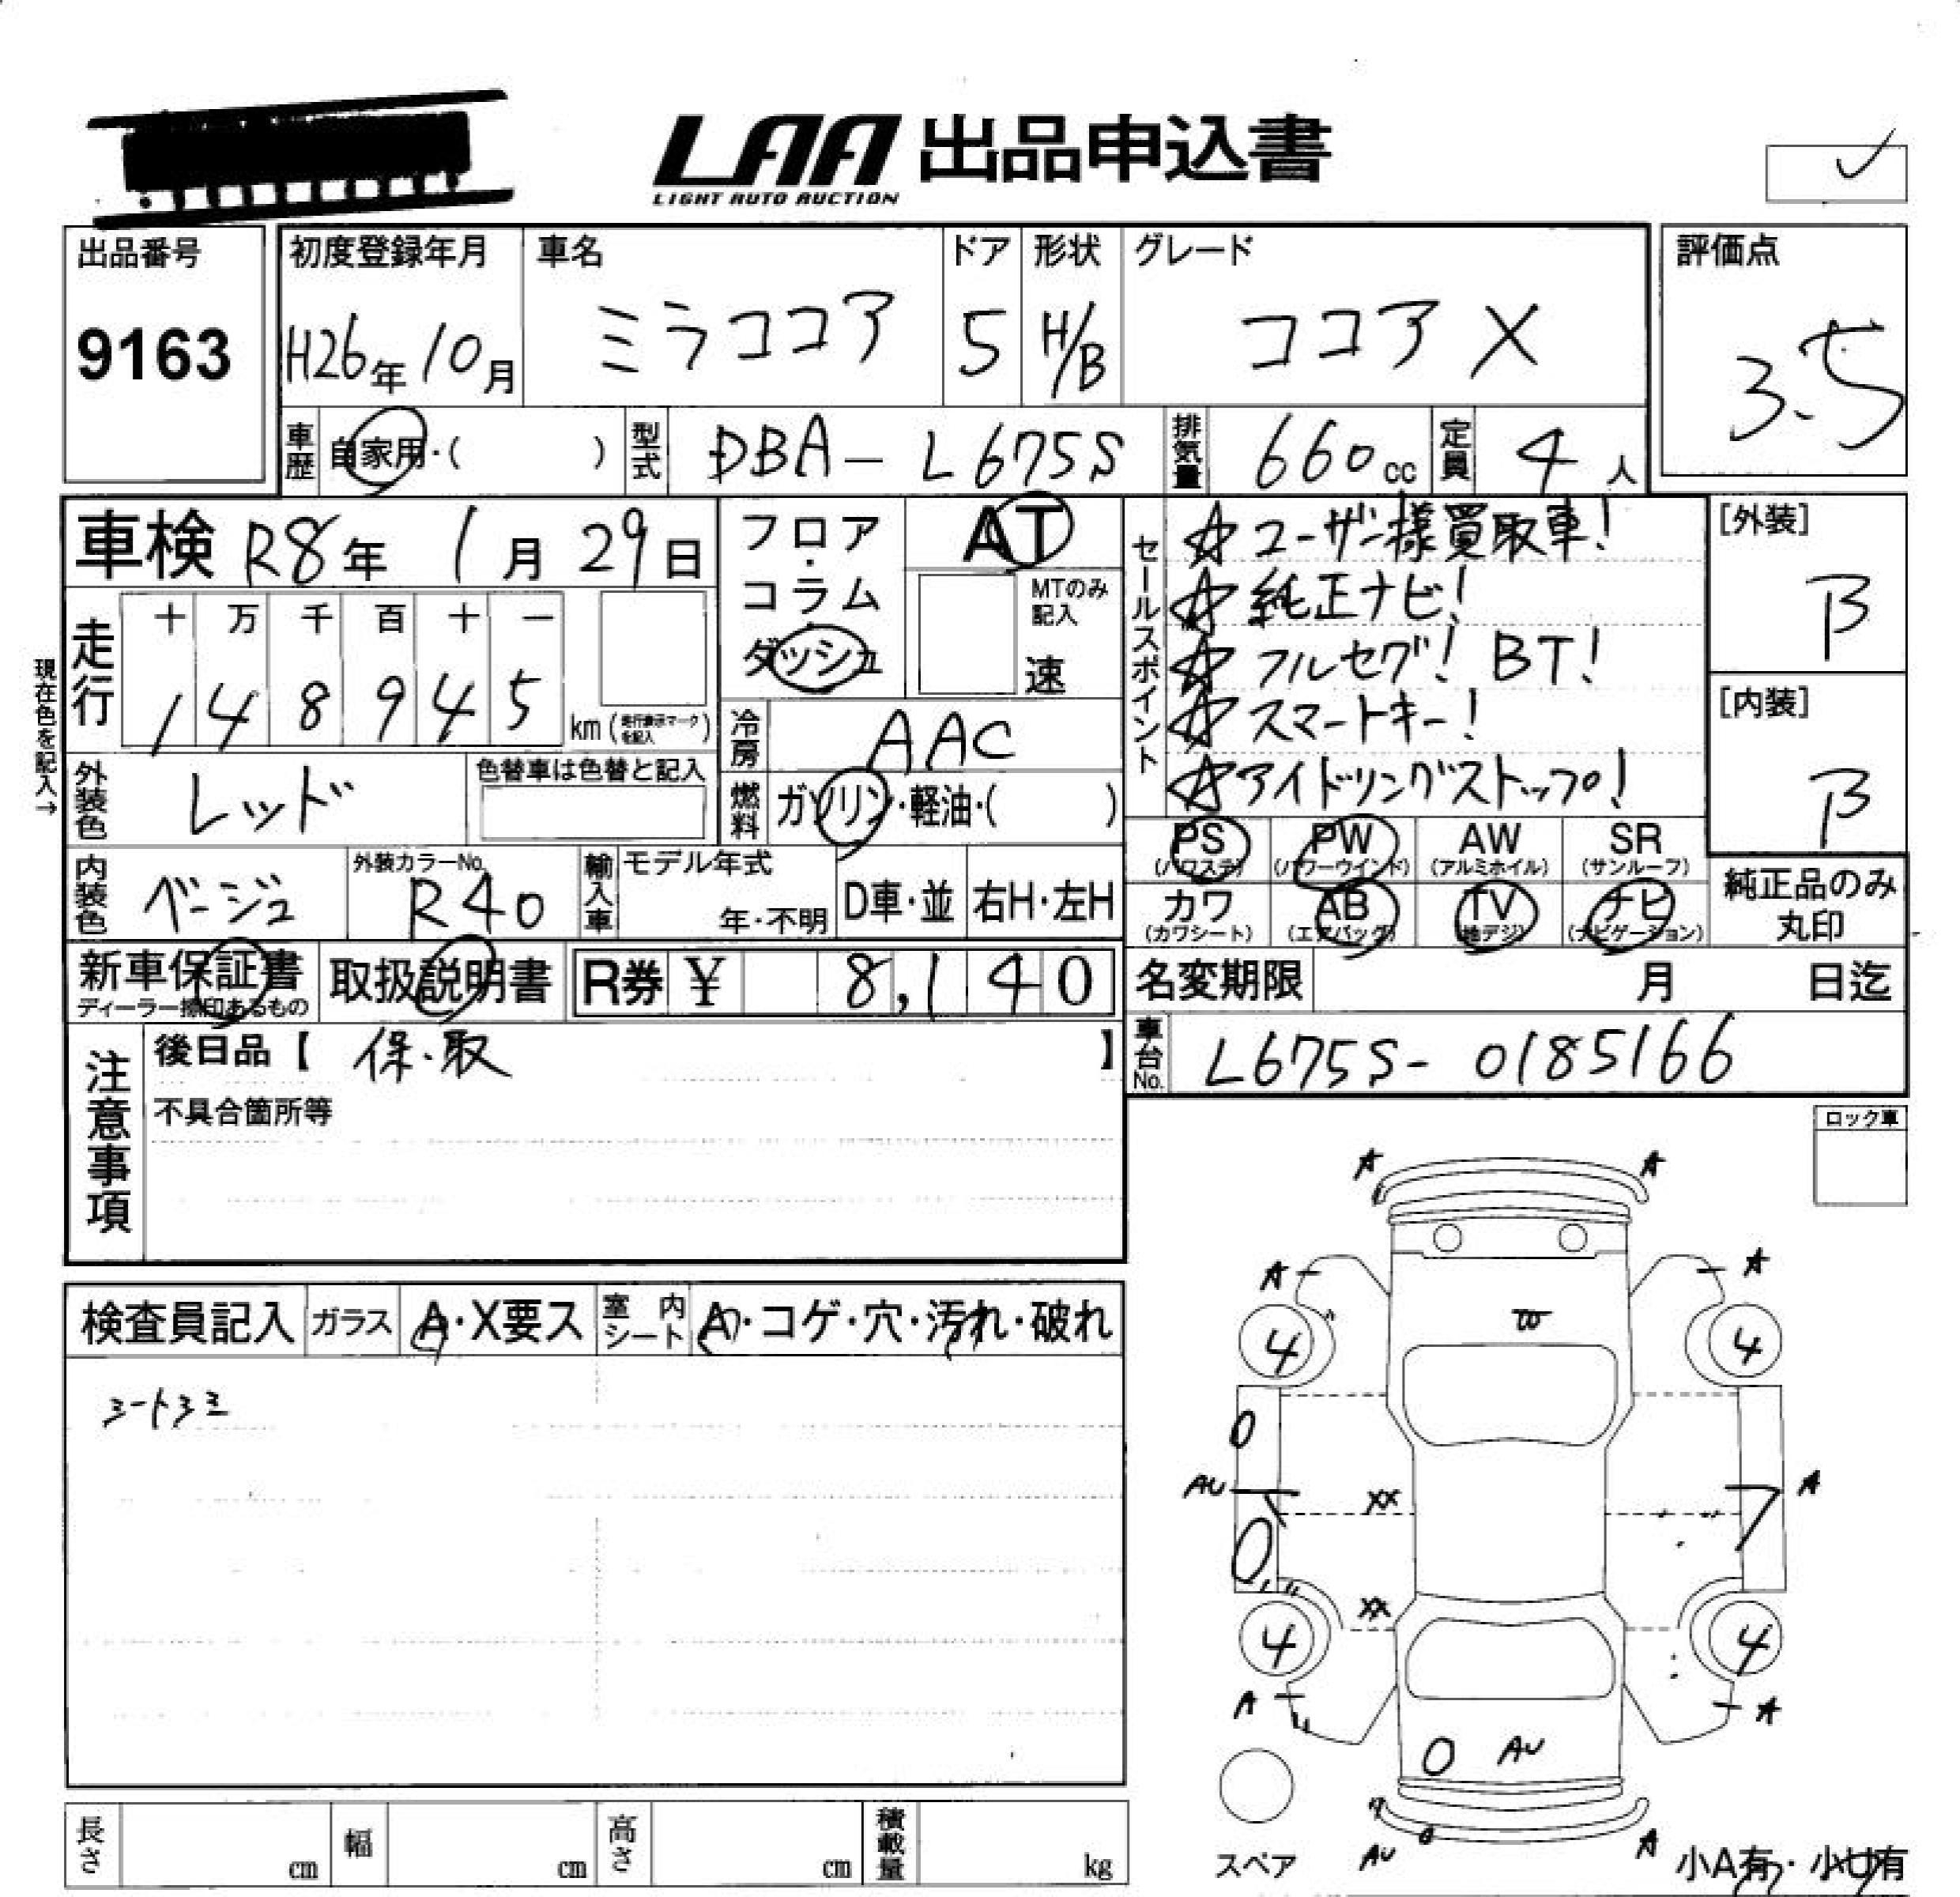 LAA 出品申込書
LIGHT AUTO AUCTION
出品番号
9163
初度登録年月
H26年10月
車名
ミラココア
ドア
5
形状
H/B
グレード
ココア X
評価点
3.5
車歴
自家用・( )
型式
DBA-L675S
排気量
660cc
定員
4人
車検 R8年 1月 29日
走行
十 万 千 百 十 一
1 4 8 9 4 5
km(走行表示マークを記入)
現在色を記入→
フロア・コラム
ダッシュ
AT
MTのみ記入
速
冷房
AAC
燃料
ガソリン・軽油・( )
外装色
レッド
色替車は色替と記入
内装色
ベージュ
外装カラーNo.
R40
輸入車
モデル年式
年・不明
D車・並
右H・左H
セールスポイント
☆ユーザー様買取車!
☆純正ナビ!
☆フルセグ! BT!
☆スマートキー!
☆アイドリングストップ!
[外装]
B
[内装]
B
PS (パワステ)
PW (パワーウインド)
AW (アルミホイル)
SR (サンルーフ)
カワ (カワシート)
AB (エアバッグ)
TV (地デジ)
ナビ (ナビゲーション)
純正品のみ
丸印
新車保証書
ディーラー捺印あるもの
取扱説明書
R券 ¥ 8,140
名変期限 月 日迄
車台No.
L675S-0185166
注意事項
後日品【 保・取 】
不具合箇所等
ロック車
検査員記入
ガラス A・X要ス
室内シート A・コゲ・穴・汚れ・破れ
シートシミ
A A
A A
W
4 4
0
AU XX A
7
0
XX
4 4
A A
0 AU
スペア
AU A
小A有・小U有
長さ cm
幅 cm
高さ cm
積載量 kg